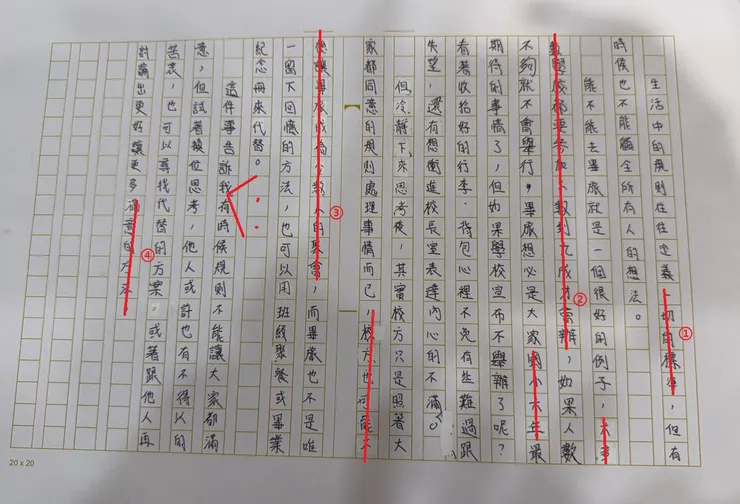 生活中的規則往往定義一切的標準，但有
時候也不能顧全所有人的想法。
能不能去畢旅就是一個很好的例子，大多
數學校都要參加人數到九成才會辦，如果人數
不夠就不會舉行，畢旅想必是大家國小六年最
期待的事情了，但如果學校宣布不舉辦了呢？
看著收拾好的行李、背包心裡不免有些難過跟
失望，還有想衝進校長室表達內心的不滿。
但冷靜下來思考後，其實校方只是照著大
家都同意的規則處理事情而已，校方也可能不
想讓畢旅成為少數人的聚會，而畢旅也不是唯
一留下回憶的方法，也可以用班級聚餐或畢業
紀念冊來代替。
這件事告訴我有時候規則不能讓大家都滿
意，但試著換位思考，他人或許也有不得以的
苦衷，也可以尋找代替的方案，或著跟他人再
討論出更好讓更多滿意的方法。
①
②
③
④
20 x 20